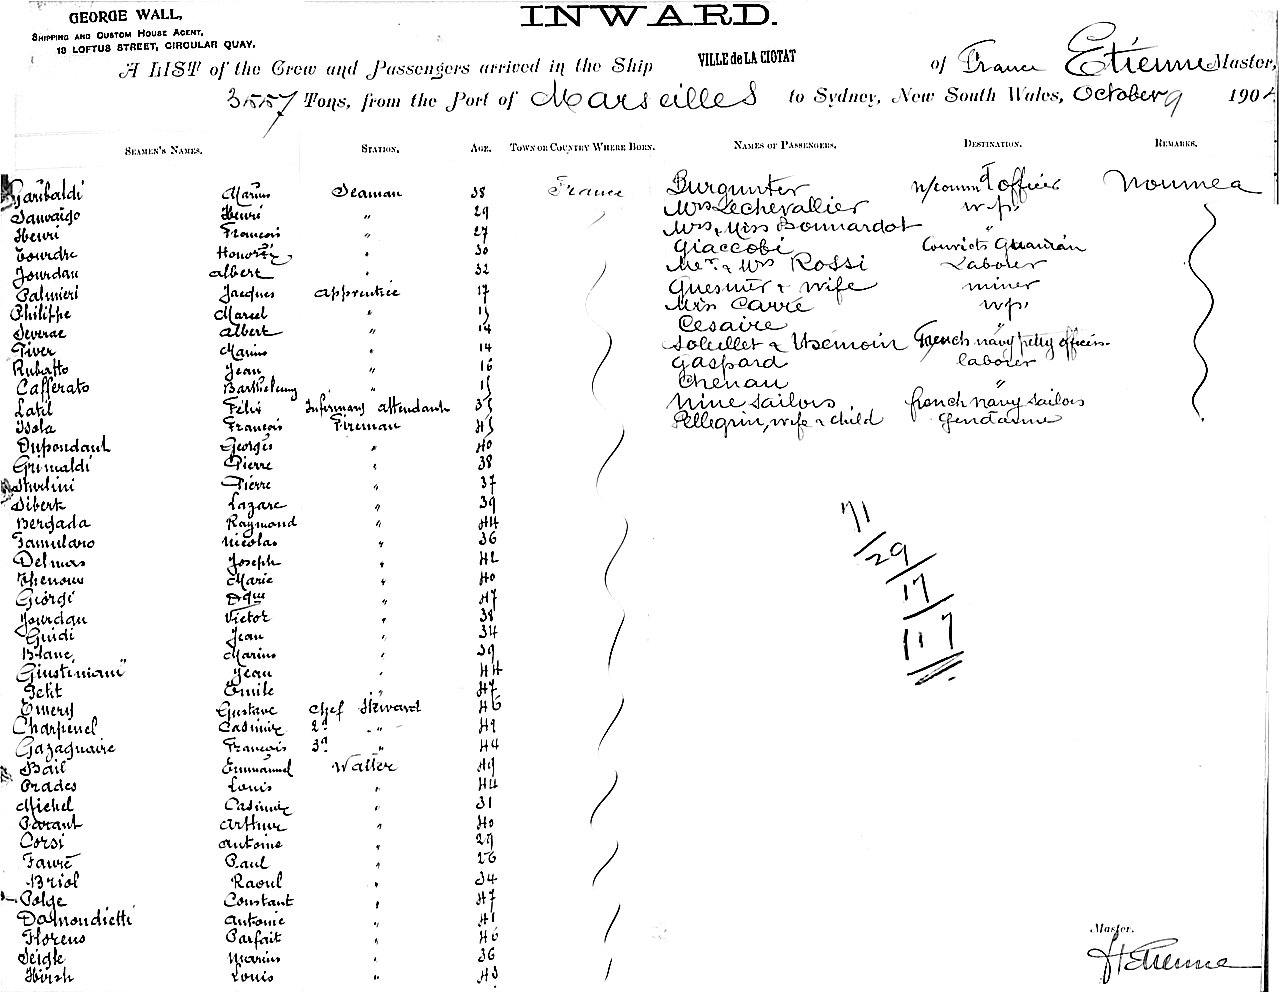 GEORGE WALL,
SHIPPING AND CUSTOM HOUSE AGENT,
18 LOFTUS STREET, CIRCULAR QUAY.
INWARD.
A LIST of the Crew and Passengers arrived in the Ship VILLE de LA CIOTAT of France Etienne Master,
3557 Tons, from the Port of Marseilles to Sydney, New South Wales, October 9 190
SEAMEN'S NAMES. STATION. AGE. TOWN OR COUNTRY WHERE BORN. NAMES OF PASSENGERS. DESTINATION. REMARKS.
Garibaldi Marius Seaman 38 France
Sauvaigo Henri " 29
Henri François " 27
Tourdre Honoré " 30
Jourdan Albert " 32
Palmieri Jacques Apprentice 17
Philippe Marcel " 15
Severac Albert " 14
Tiver Marius " 14
Rubatto Jean " 16
Cafferato Barthelemy " 15
Latil Félix Infirmary attendant 35
Isola François Fireman 45
Dupondant Georges " 40
Grimaldi Pierre " 38
Pierre " 37
Sibert Lazare " 39
Bergada Raymond " 44
Tamulano Nicolas " 36
Delmas Joseph " 42
Thenous Marie " 40
Giorgi Dque " 47
Jourdan Victor " 38
Guidi Jean " 34
Blanc Marius " 39
Giustiniani Jean " 44
Petit Emile " 47
Emery Gustave Chef Steward 46
Charpenel Casimir 2d " 49
Gazagnaire François 3d " 44
Bail Emmanuel Waiter 49
Prades Louis " 44
Michel Casimir " 31
Parant Arthur " 40
Corsi Antoine " 29
Favre Paul " 26
Briol Raoul " 34
Polge Constant " 47
Damondietti Antoine " 41
Florens Parfait " 46
Seigle Marius " 36
Hirsh Louis " 43
Burgunter n/comm d officer Noumea
Mrs Lechevallier w/p.
Mrs & Miss Bonnardot "
Giaccobi Convicts Guardian
Mr. & Mrs Rossi Laborer
Guesnier & wife miner
Mrs Carré w/p.
Cesaire "
Soleillet & Usemoin French navy petty officers
Gaspard laborer
Chenau "
Nine sailors french navy sailors
Pellegrin, wife & child Gendarme
71
29
17
117
Master.
H Etienne